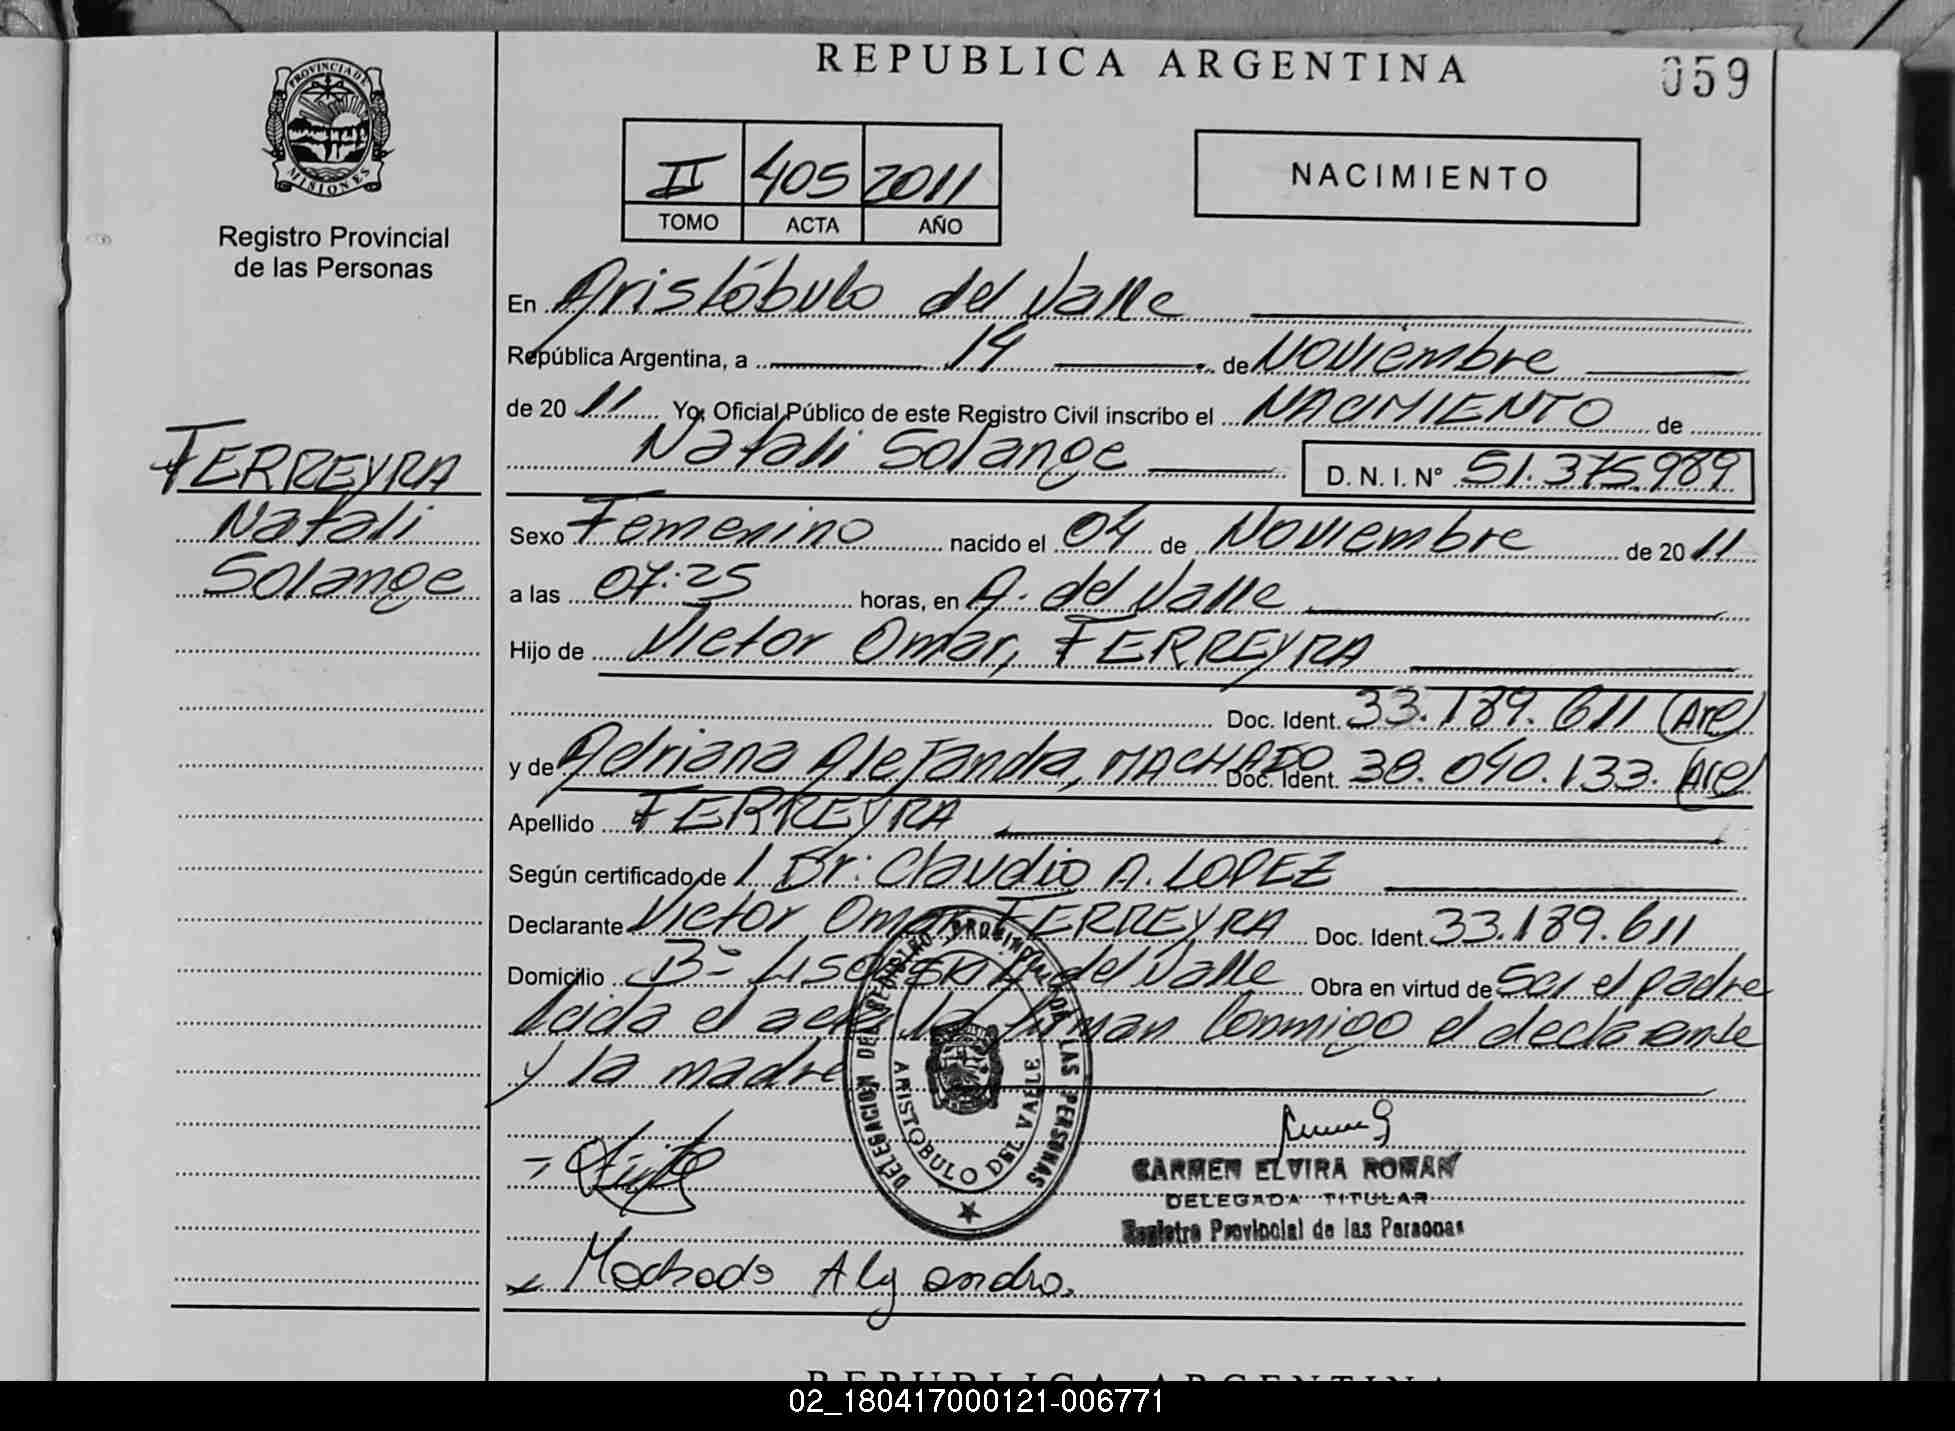 REPUBLICA ARGENTINA
059
PROVINCIA DE
MISIONES
Registro Provincial
de las Personas
II 405 2011
TOMO ACTA AÑO
NACIMIENTO
En Aristóbulo del Valle
República Argentina, a 14 de Noviembre
de 2011 Yo, Oficial Público de este Registro Civil inscribo el NACIMIENTO de
Natali Solange D. N. I. Nº 51.375.989
FERREYRA
Natali
Solange
Sexo Femenino nacido el 04 de Noviembre de 2011
a las 07:25 horas, en A. del Valle
Hijo de Victor Omar, FERREYRA
Doc. Ident. 33.189.611 (Arg)
y de Adriana Alejanda, MACHADO Doc. Ident. 38.040.133. (Arg)
Apellido FERREYRA
Según certificado de / Dr: Claudio A. LOPEZ
Declarante Victor Omar FERREYRA Doc. Ident. 33.189.611
Domicilio Bº del Valle Obra en virtud de Ser el padre
Leida el acta la firman Conmigo el declarante
y la madre
DELEGACION DEL REGISTRO PROVINCIAL DE LAS PERSONAS
ARISTOBULO DEL VALLE
CARMEN ELVIRA ROMAN
DELEGADA TITULAR
Registro Provincial de las Personas
Machado Alejandra.
REPUBLICA ARGENTINA
02_180417000121-006771